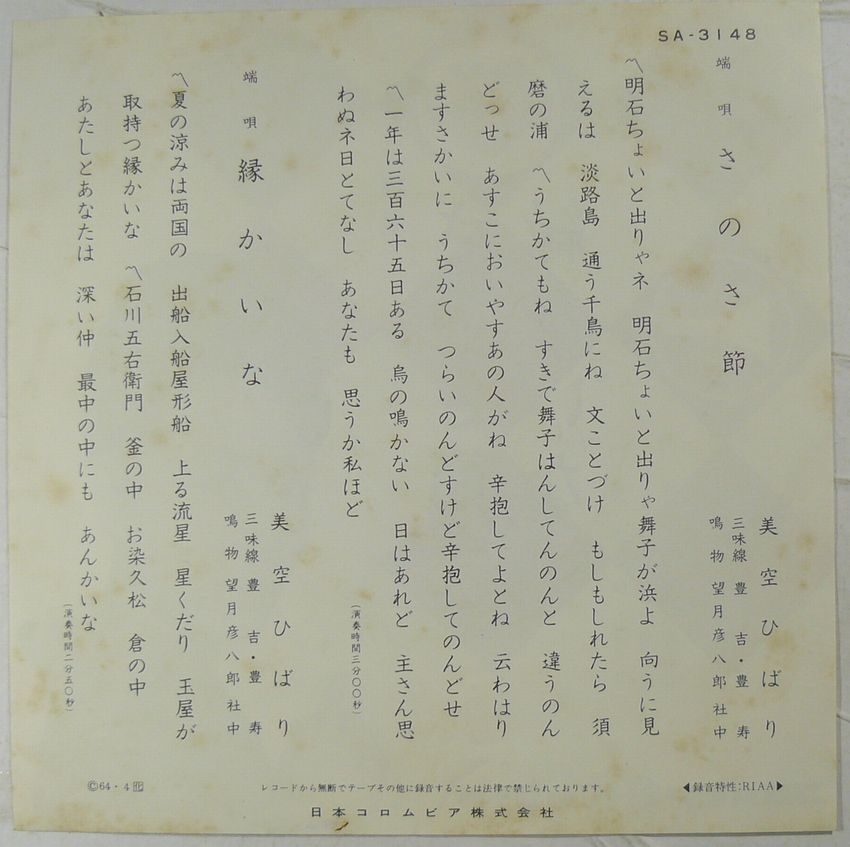 SA-3148
端唄 さのさ節
美空ひばり
三味線 豊吉・豊寿
鳴物 望月彦八郎社中
〽明石ちょいと出りゃネ 明石ちょいと出りゃ舞子が浜よ 向うに見
えるは 淡路島 通う千鳥にね 文ことづけ もしもしれたら 須
磨の浦 〽うちかてもね すきで舞子はんしてんのんと 違うのん
どっせ あすこにおいやすあの人がね 辛抱してよとね 云わはり
ますさかいに うちかて つらいのんどすけど辛抱してのんどせ
〽一年は三百六十五日ある 烏の鳴かない 日はあれど 主さん思
わぬネ日とてなし あなたも 思うか私ほど
(演奏時間三分〇〇秒)
端唄 縁かいな
美空ひばり
三味線 豊吉・豊寿
鳴物 望月彦八郎社中
〽夏の涼みは両国の 出船入船屋形船 上る流星 星くだり 玉屋が
取持つ縁かいな 〽石川五右衛門 釜の中 お染久松 倉の中
あたしとあなたは 深い仲 最中の中にも あんかいな
(演奏時間二分五〇秒)
◀録音特性:RIAA▶
レコードから無断でテープその他に録音することは法律で禁じられております。
Ⓒ64・4
日本コロムビア株式会社